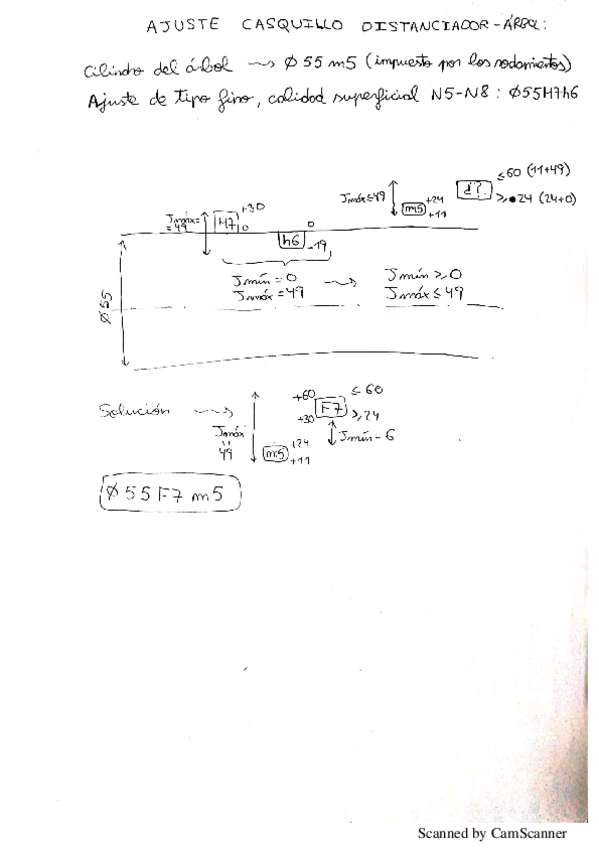 AJUSTE CASQUILLO DISTANCIADOR-ÁRBOL:
Cilindro del árbol ⟿ Ø 55 m5 (impuesto por los rodamientos)
Ajuste de tipo fino, calidad superficial N5-N8: Ø55H7h6
≤60 (11+49)
Jmáx≤49
d?
m5 +24
+11
≥ 24 (24+0)
Jmáx=
=49
H7 +30
0
0
h6 -19
Ø55
Jmín=0
Jmáx=49
⟿
Jmín≥0
Jmáx≤49
Solución ⟿
+60
+30
F7
≤ 60
≥24
Jmáx
=
49
m5 +24
+11
Jmín-6
Ø55F7m5
Scanned by CamScanner